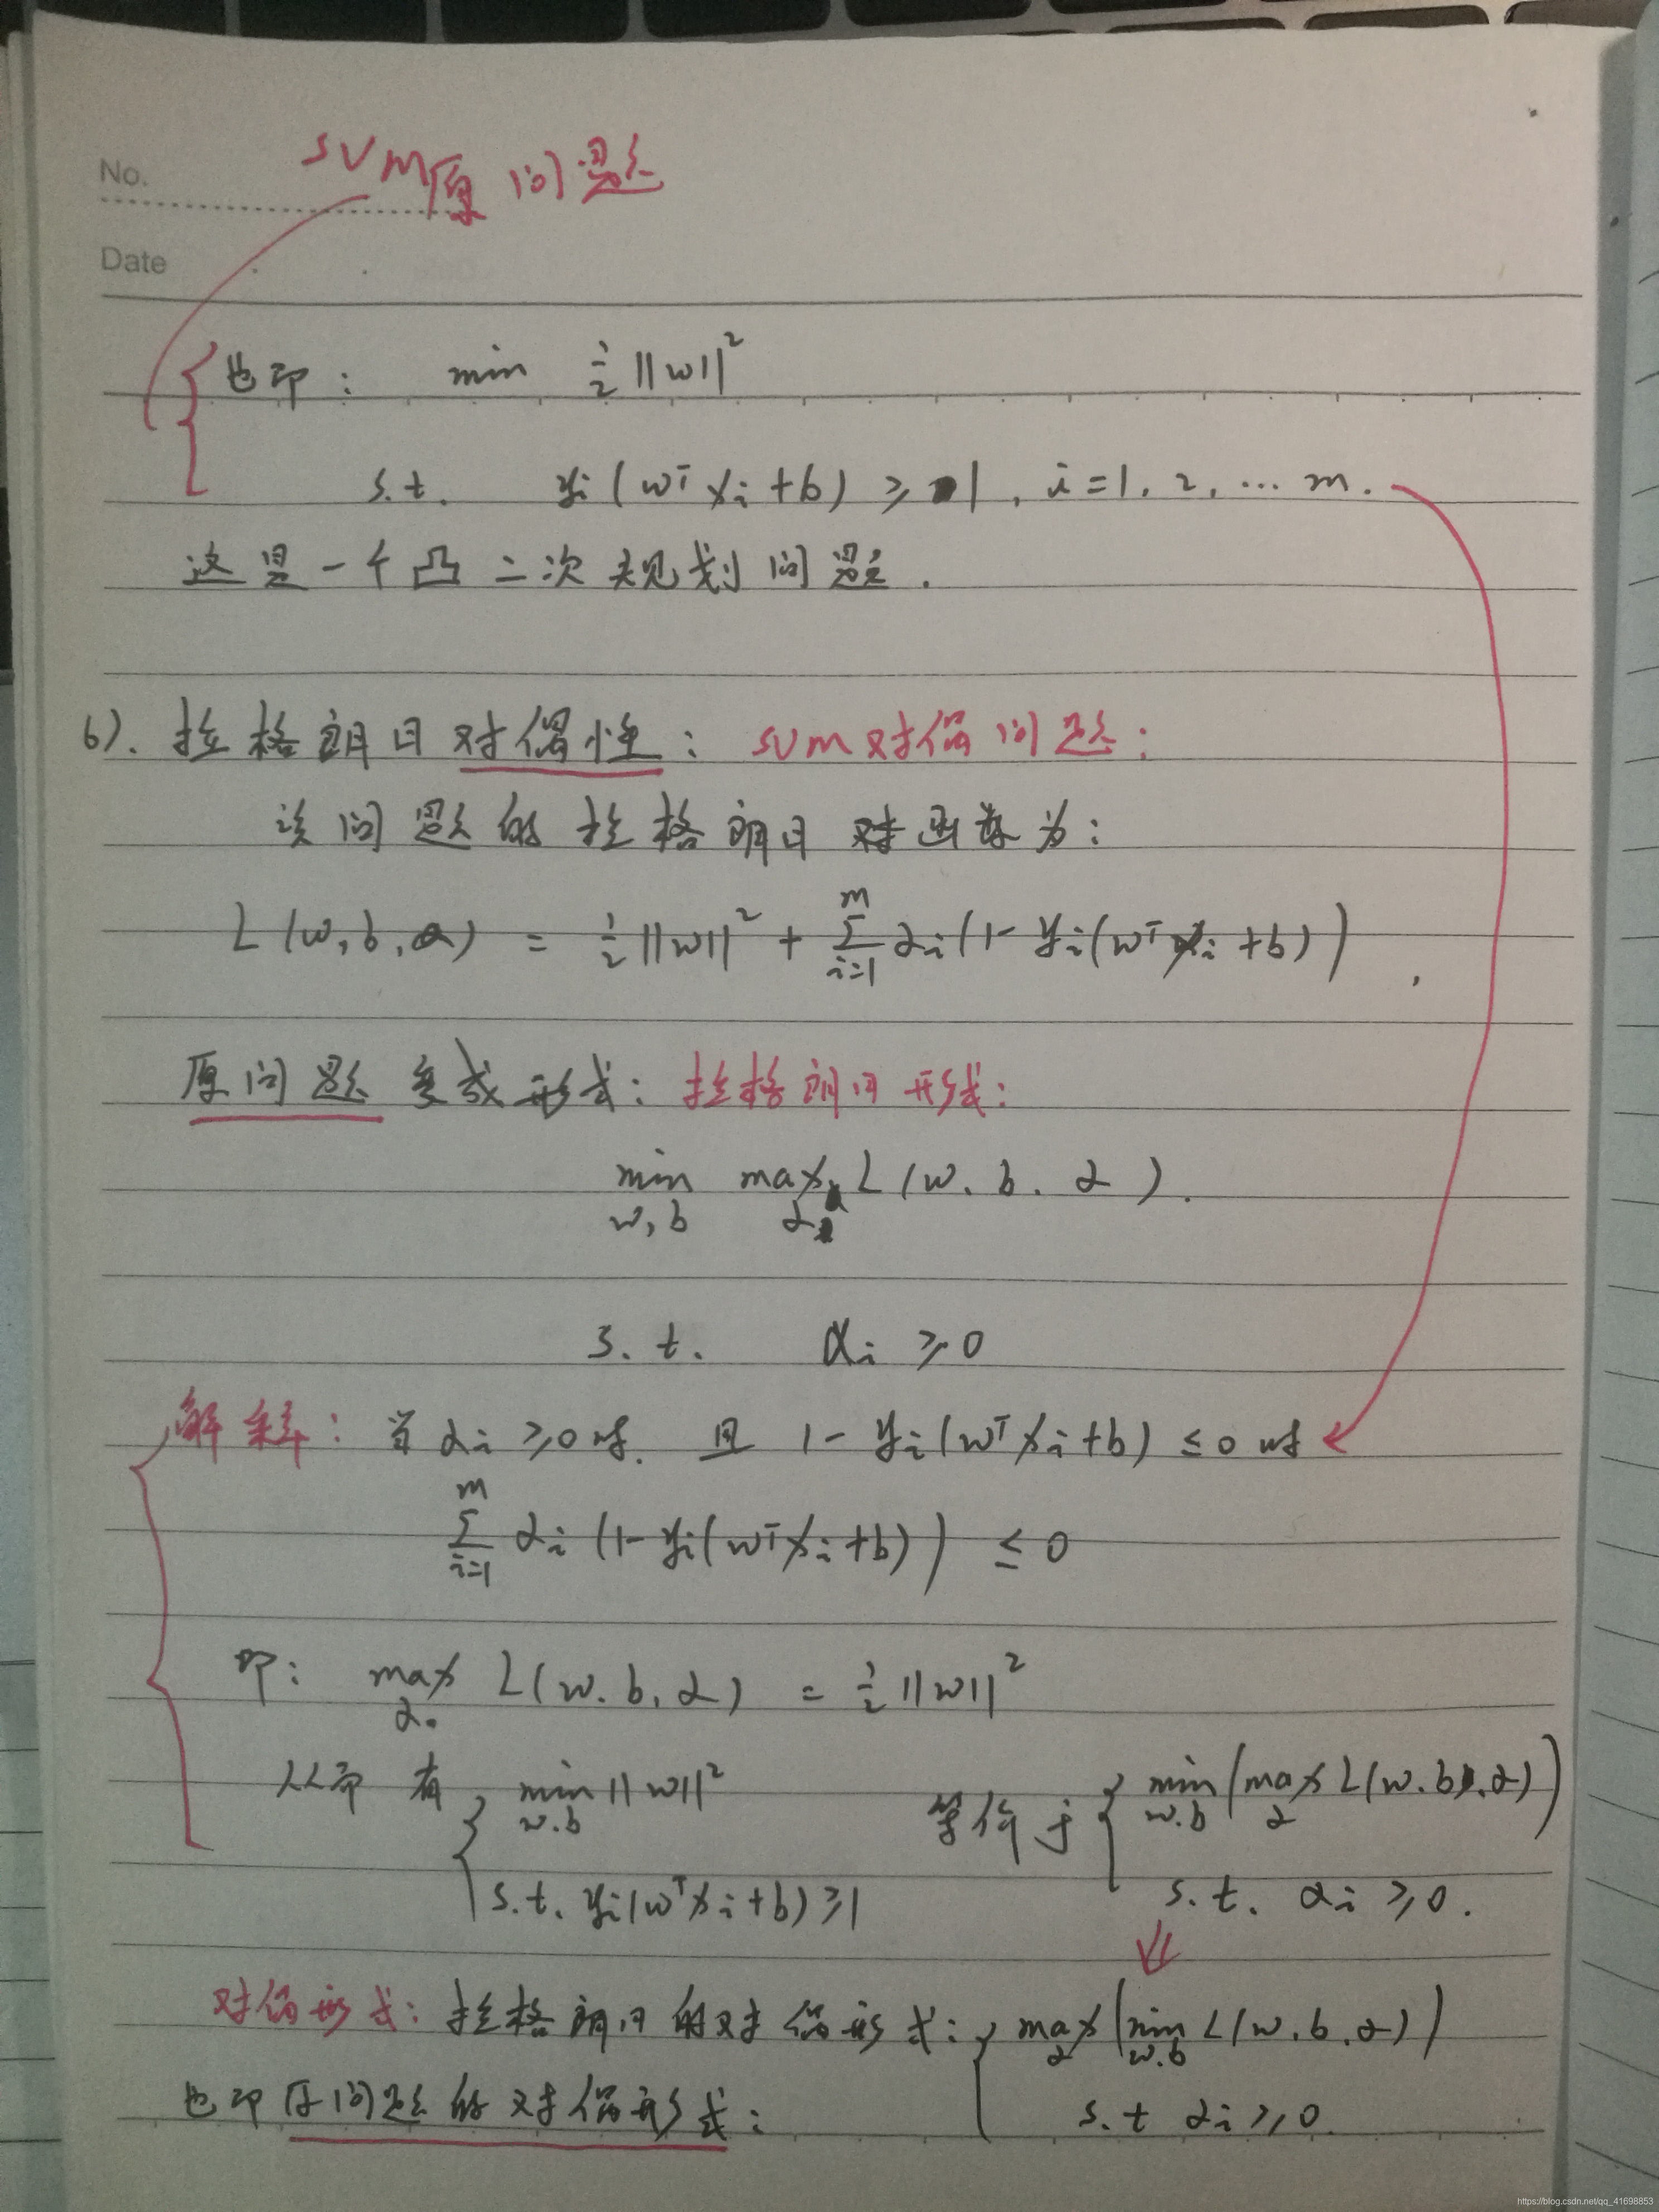 No.
SVM原问题
Date
也即: min ½||w||²
s.t. yi(wᵀxi+b) ≥ 1, i=1, 2, ... m.
这是一个凸二次规划问题.
b). 拉格朗日对偶性: SVM对偶问题:
该问题的拉格朗日对函数为:
L(w, b, α) = ½||w||² + Σᵐᵢ₌₁ αi(1- yi(wᵀxi+b))
原问题变成形式: 拉格朗日形式:
min w,b max α L(w. b. α).
s. t. αi ≥ 0
解释: 当 αi ≥0时. 且 1- yi(wᵀxi+b) ≤ 0 时
Σᵐᵢ₌₁ αi (1-yi(wᵀxi+b)) ≤ 0
即: max α. L(w. b, α) = ½||w||²
从而有 { min w.b ||w||² 等价于 { min w.b (max α L(w. b. α))
s.t. yi(wᵀxi+b)≥1 s. t. αi ≥0.
对偶形式: 拉格朗日的对偶形式: { max α (min w.b L(w. b. α))
也即原问题的对偶形式: s.t αi ≥0.
https://blog.csdn.net/qq_41698853